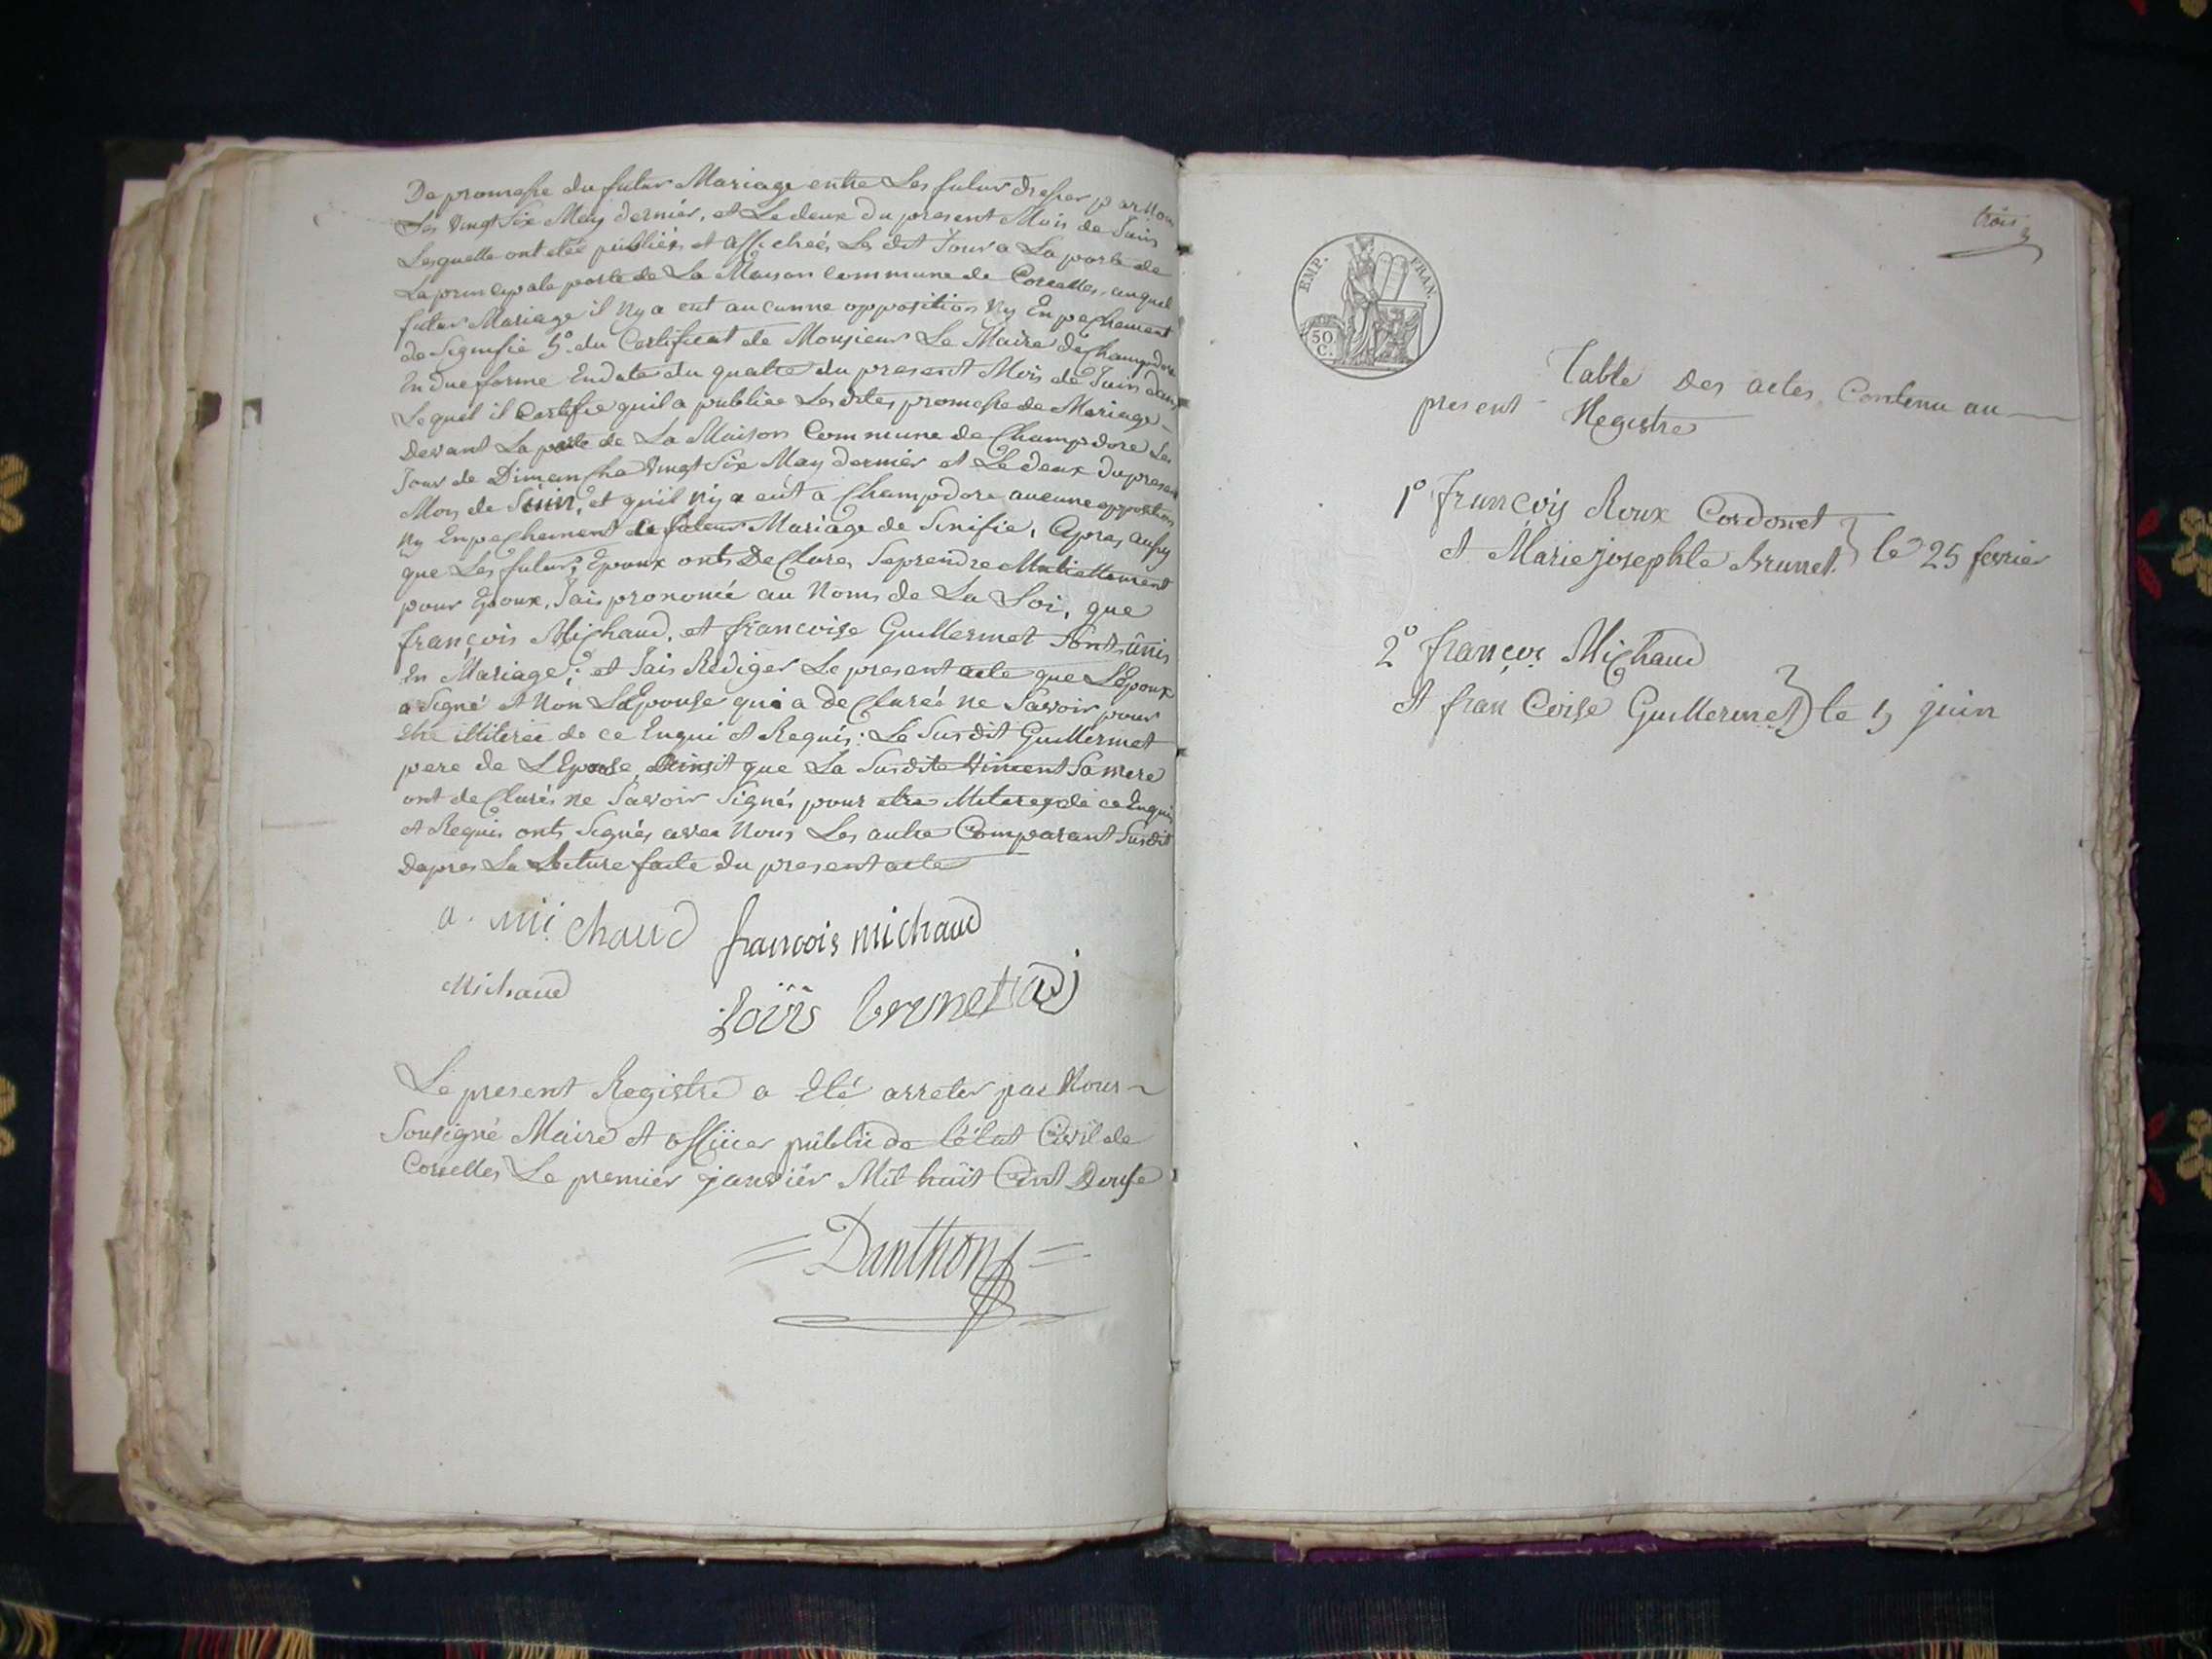 De promesse du futur Mariage entre Les futur dresser par Nous
Les vingt Six May dernier, et Le deux du present Mois de Juin
Lesquelle ont été publiées et affichées Les dit Jour a La porte de
La principale porte de La Maison Commune de Corcelles, auquel
futur Mariage il Ny a eut aucunne opposition Ny Enpechement
de Signifie 5º du Certificat de Monsieur Le Maire de Champdore
En due forme En date du quatre du present Mois de Juin dans
Lequel il Certifie quil a publiée Les dites promesse de Mariage
Devant La porte de La Maison Commune de Champdore Les
Jour de Dimanche vingt Six May dernier et Le deux du present
Mois de Juin, et quil Ny a eut a Champdore aucune opposition
Ny Enpechement de futur Mariage de Sinifie, Apres aussy
que Les futurs Epoux onts Declares Se prendre Mutuellement
pour Epoux, Jais prononcé au Noms de La Loi, que
françois Michaud, et francoise Guillermet Sont unis
En Mariage; et Jais Rediger Le present acte que LEpoux
a Signé et Non LEpouse qui a declaréé ne Savoir pour
etre illiterée de ce Enqui et Requis: Le Susdit Guillermet
pere de LEpouse, Ainsit que La Susdite Vincent Sa mere
ont declarés ne Savoir Signés pour etre illiteres de ce Enquis
et Requis onts Signés avec Nous Les autre Comparant Susdit
Dapres La Lecture faite du present acte
a. michaud françois michaud
Michaud
Loüis brunet adj
Le present Registre a Eté arreter par Nous
Sousigné Maire et officier public de l'état Civil de
Corcelles Le premier janvier Mil huit Cent Douse
Danthon
trois
EMP. FRAN.
50
C.
Table Des actes Contenu au
present Registre
1º françois Roux Cordonet
et Marie josephte Brunet } le 25 fevrier
2º françois Michaud
et fran Coise Guillermet } le 5 juin